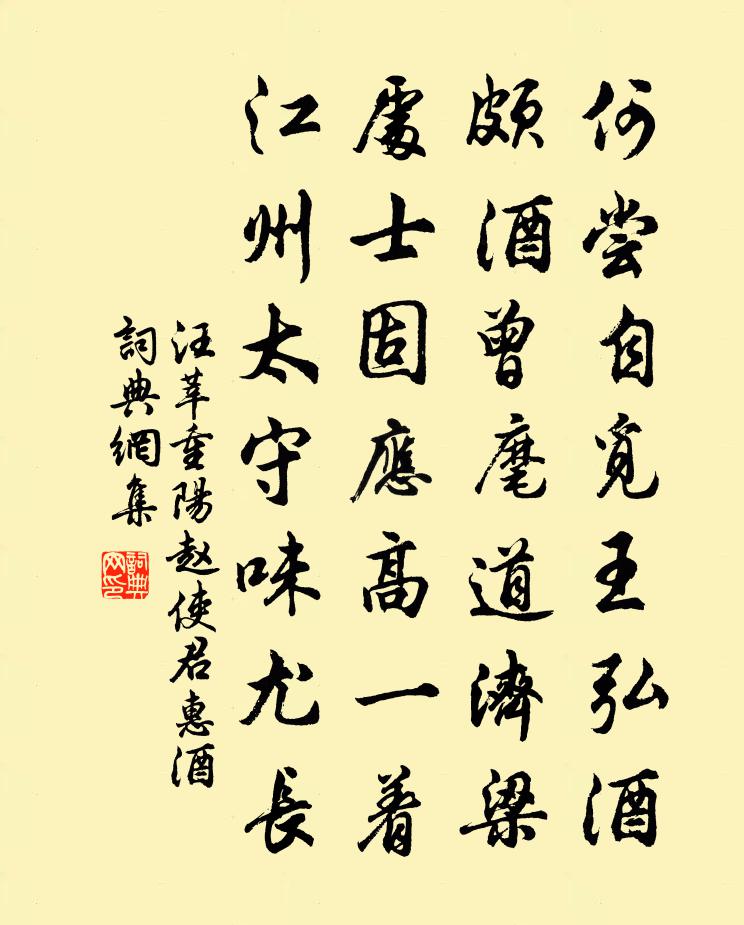 何尝自覓王弘酒
頗酒曾麾道濟梁
處士固應高一着
江州太守味尤長
汪莘重陽赵使君惠酒
詞典網集
詞典网印